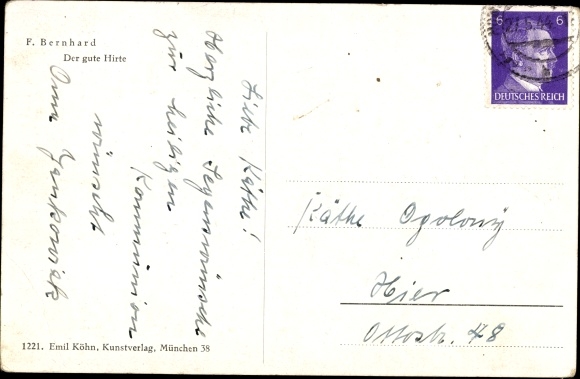 F. Bernhard
Der gute Hirte
Liebe Käthe!
Herzliche Segenswünsche
zur heiligen
Kommunion
wünscht
Anna Jankowiak
1221. Emil Köhn, Kunstverlag, München 38
6 6
DEUTSCHES REICH
Käthe Ogolony
Hier
Ottostr. 48